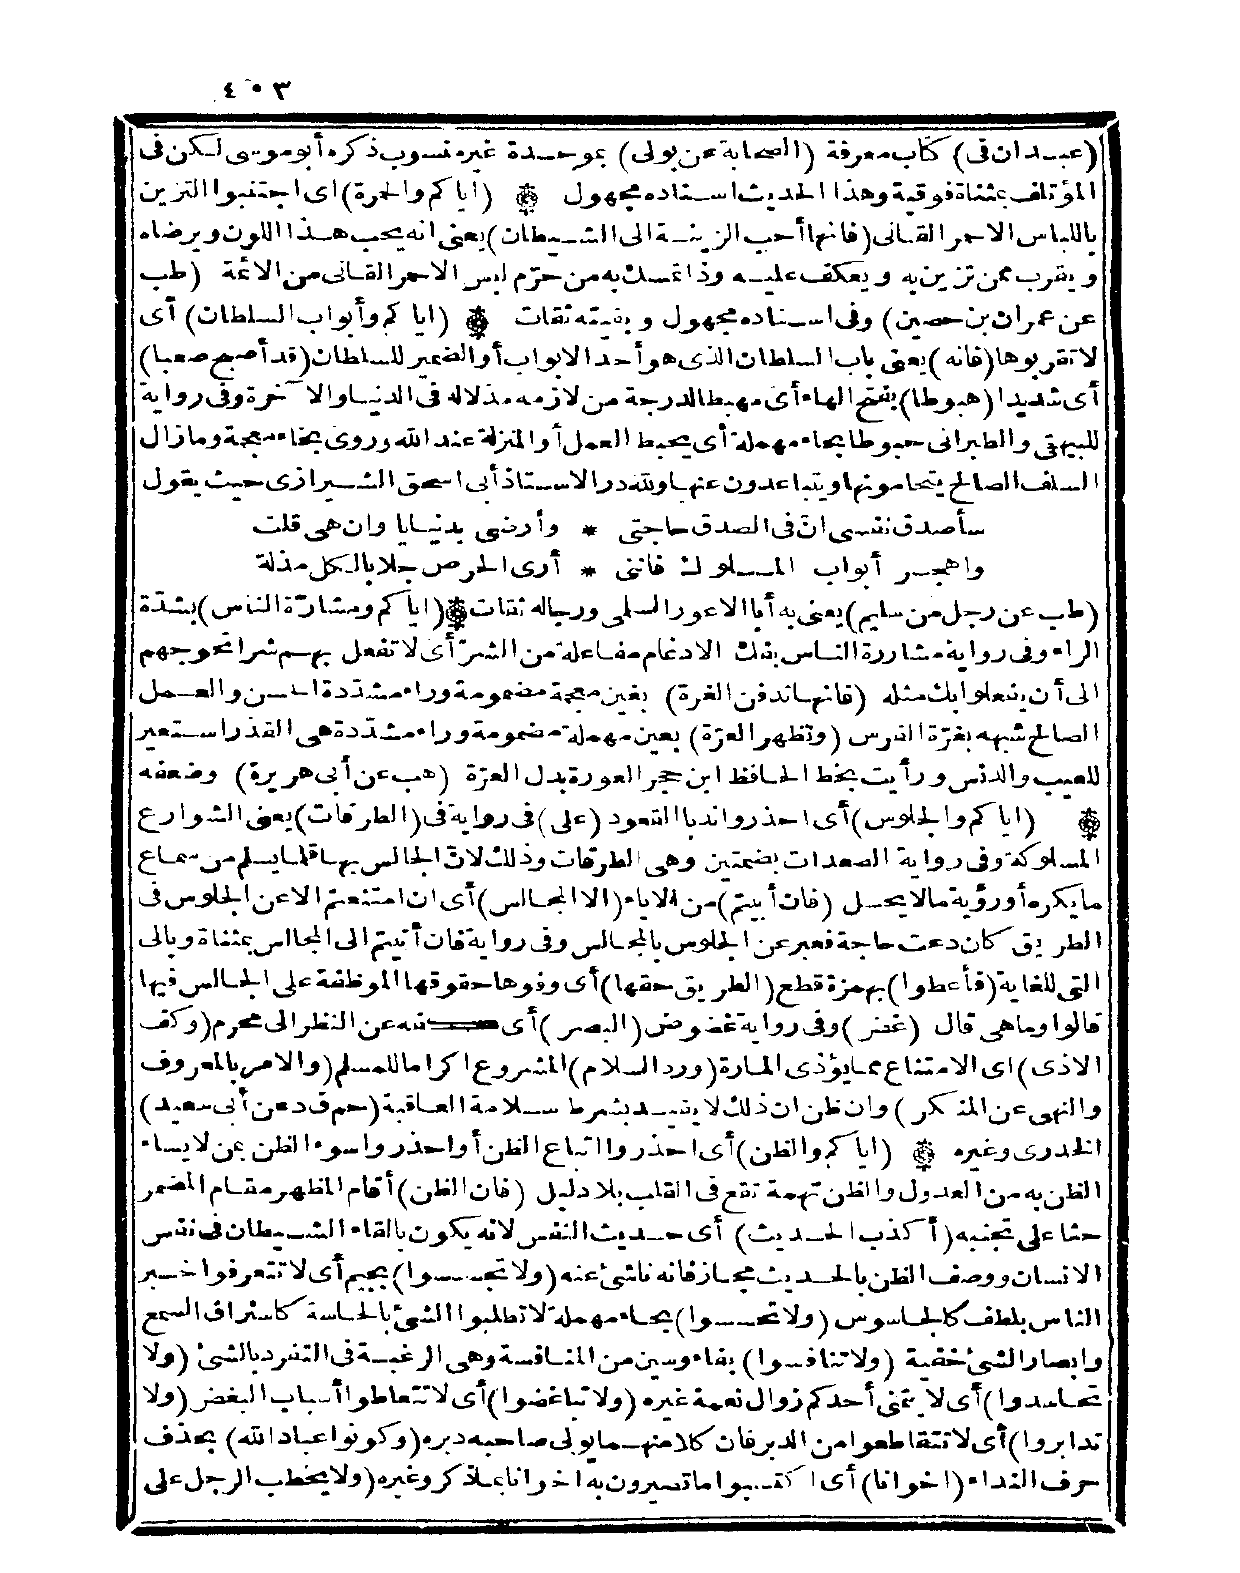 ٤٠٣
(عبدان فى) كتاب معرفة (الصحابة عن بولى) بموحدة غير منسوب ذكره أبو موسى لكن فى
المؤتلف بمثناة فوقية وهذا الحديث اسناده مجهول ۞ (اياكم والحمرة) اى اجتنبوا التزين
باللباس الاحمر القانى (فانها أحب الزينة الى الشيطان) يعنى انه يحب هذا اللون ويرضاه
ويقرب ممن تزين به ويعكف عليه وذا تمسك به من حرّم لبس الاحمر القانى من الائمة (طب
عن عمران بن حصين) وفى اسناده مجهول وبقيته ثقات ۞ (اياكم وأبواب السلطان) أى
لا تقربوها (فانه) يعنى باب السلطان الذى هو أحد الابواب أو الضمير للسلطان (قد أصبح صعبا)
أى شديدا (هبوطا) بفتح الهاء أى مهبط الدرجة من لازمه مذلاله فى الدنيا والآخرة وفى رواية
للبيهقى والطبرانى حبوطا بحاء مهملة أى يحبط العمل أو المنزلة عند الله وروى بخاء معجمة وما زال
السلف الصالح يتحامونها ويتباعدون عنها ولله در الاستاذ أبى اسحق الشيرازى حيث يقول
سأصدق نفسى انّ فى الصدق حاجتى * وأرضى بدنيايا وان هى قلت
واهجر أبواب الملوك فاننى * أرى الحرص جلابا لكل مذلة
(طب عن رجل من سليم) يعنى به أبا الاعور السلمى ورجاله ثقات ۞ (اياكم ومشارّة الناس) بشدّة
الراء وفى رواية مشاررة الناس بفك الادغام مفاعلة من الشرّ أى لا تفعل بهم شرا تحوجهم
الى أن يفعلوا بك مثله (فانها تدفن الغرة) بغين معجمة مضمومة وراء مشدّدة الحسن والعمل
الصالح شبهه بغرّة الفرس (وتظهر العرّة) بعين مهملة مضمومة وراء مشدّدة هى القذر استعير
للعيب والدنس ورأيت بخط الحافظ ابن حجر العورة بدل العرّة (هب عن أبى هريرة) وضعفه
۞ (اياكم والجلوس) أى احذروا ندبا القعود (على) فى رواية فى (الطرقات) يعنى الشوارع
المسلوكة وفى رواية الصعدات بضمتين وهى الطرقات وذلك لانّ الجالس بها قلما يسلم من سماع
ما يكره أو رؤية ما لا يحل (فان أبيتم) من الاباء (الا المجالس) أى ان امتنعتم الا عن الجلوس فى
الطريق كان دعت حاجة فعبر عن الجلوس بالمجالس وفى رواية فان أتيتم الى المجالس بمثناة وبالى
التى للغاية (فأعطوا) بهمزة قطع (الطريق حقها) أى وفوها حقوقها الموظفة على الجالس فيها
قالوا وما هى قال (غض) وفى رواية غضوض (البصر) أى كفه عن النظر الى محرم (وكف
الاذى) اى الامتناع مما يؤذى المارة (ورد السلام) المشروع اكراما للمسلم (والامر بالمعروف
والنهى عن المنكر) وان ظن ان ذلك لا يفيد بشرط سلامة العاقبة (حم ق د عن أبى سعيد)
الخدرى وغيره ۞ (اياكم والظن) أى احذروا اتباع الظن أو احذروا سوء الظن بمن لا يساء
الظن به من العدول والظن تهمة تقع فى القلب بلا دليل (فان الظن) أقام المظهر مقام المضمر
حثا على تجنبه (أكذب الحديث) أى حديث النفس لانه يكون بالقاء الشيطان فى نفس
الانسان ووصف الظن بالحديث مجاز فانه ناشئ عنه (ولا تجسسوا) بجيم أى لا تتعرفوا خبر
الناس بلطف كالجاسوس (ولا تحسسوا) بحاء مهملة لا تطلبوا الشئ بالحاسة كاستراق السمع
وابصار الشئ خفية (ولا تنافسوا) بفاء وسين من المنافسة وهى الرغبة فى التفرد بالشئ (ولا
تحاسدوا) أى لا يتمنى أحدكم زوال نعمة غيره (ولا تباغضوا) أى لا تتعاطوا أسباب البغض (ولا
تدابروا) أى لا تتقاطعوا من الدبر فان كلا منهما يولى صاحبه دبره (وكونوا عباد الله) بحذف
حرف النداء (اخوانا) أى اكتسبوا ما تصيرون به اخوانا مما ذكر وغيره (ولا يخطب الرجل على